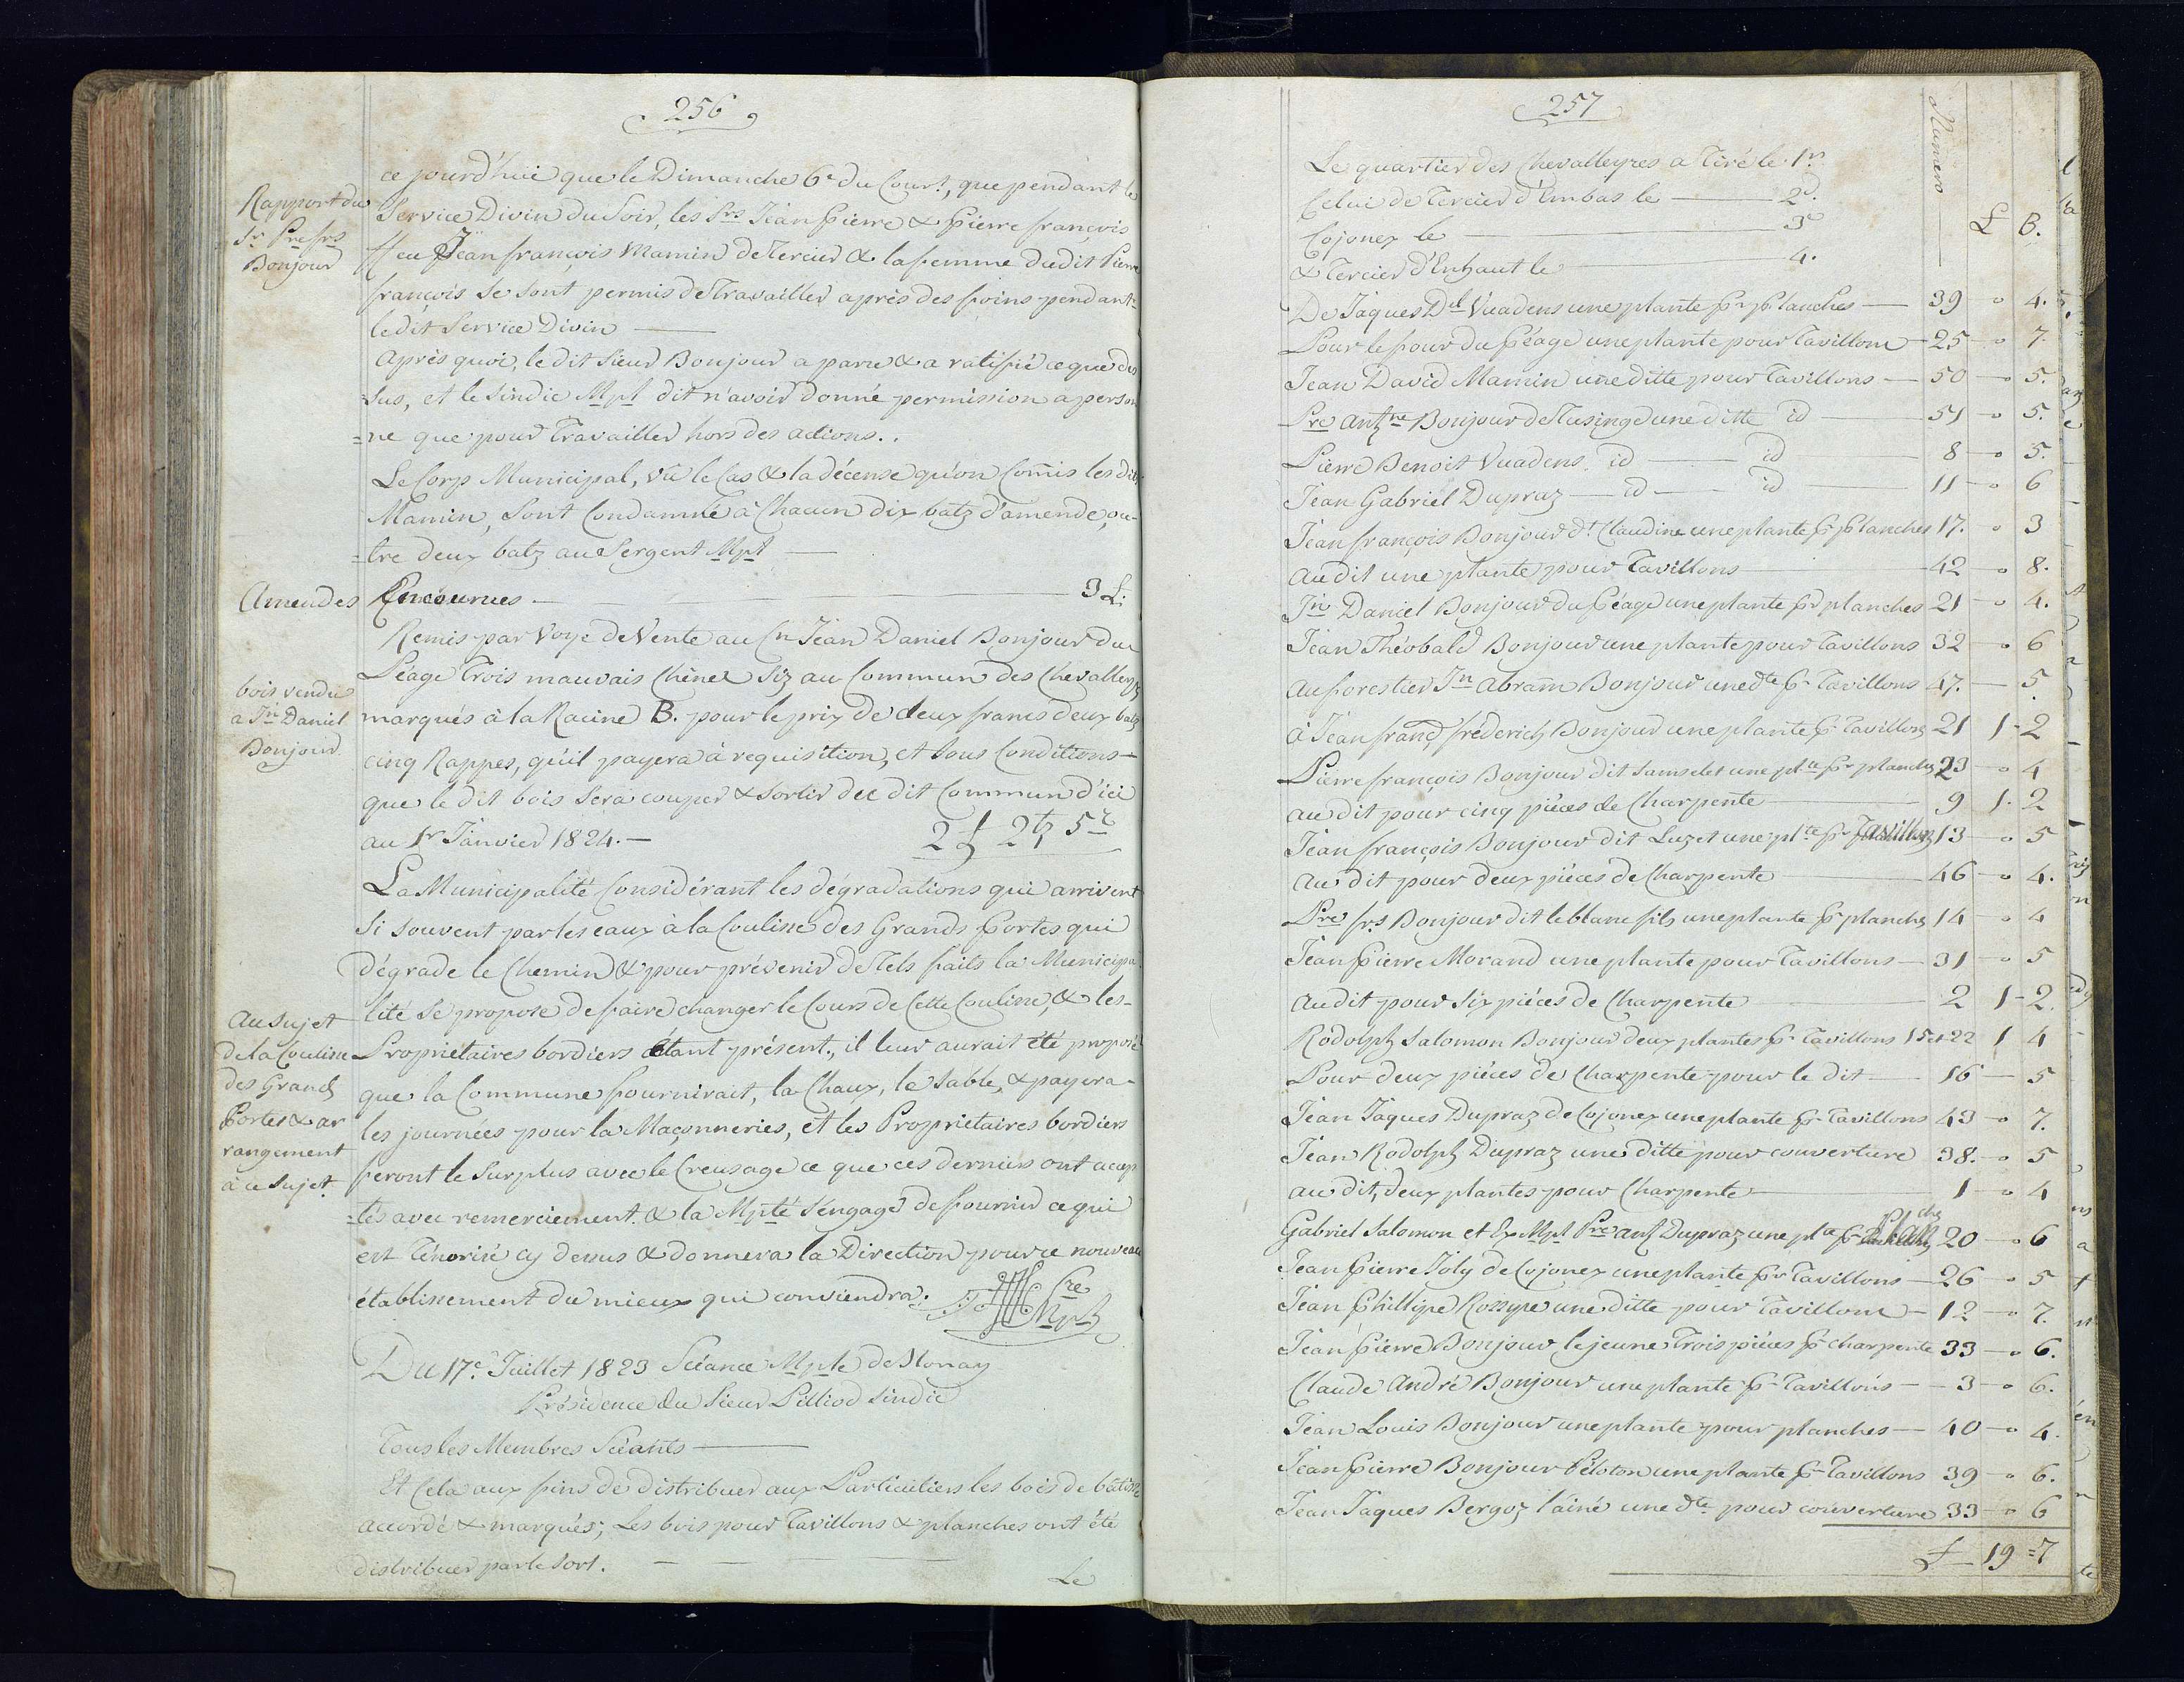 256
ce jourd'hui que le Dimanche 6e du Court, que pendant le
Rapport du
Sr Pre frs
Bonjour
Service Divin du Soir, les Srs Jean Pierre & Pierre françois
ffeu Jean françois Mamin de Tercier & la femme du dit Pierre
françois se sont permis de travailler après des foins pendant
le dit Service Divin
Après quoi, le dit Sieur Bonjour a paru & a ratifié ce que des
=sus, et le Sindic Mpl dit n'avoir donné permission a person
=ne que pour travailler hors des actions..
Le Corp Municipal, vû le Cas & la décense qu'on Comis les dits
Mamin, sont Condamné à Chacun dix batz d'amende, ou-
=tre deux batz au Sergent Mpl
Amendes Encourues 3 L.
Remis par Voye de Vente au Sn Jean Daniel Bonjour du
bois vendu
a Jn Daniel
Bonjour
Péage Trois mauvais Chênes Siz au Commun des Chevalleyres
marqués à la Racine B. pour le prix de deux francs deux batz
cinq Rappes, qu'il payera à requisition, et sous Conditions
que le dit bois sera couper & sortir du dit Commun d'ici
au 1r Janvier 1824. 2 f 2 bz 5 r
La Municipalité Considérant les dégradations qui arrivent
si souvent par les eaux à la Coulisse des Grands Portes qui
dégrade le Chemin & pour prévenir de tels faits la Municipa
lité se propose de faire changer le Cours de Cette Coulisse, & les
Au sujet
de la Coulisse
des Grands
Portes & ar
rangement
à ce sujet.
Propriétaires bordiers étant présent, il leur aurait été proposé
que la Commune fournirait, la Chaux, le Sable, & payera
les journées pour la Maçonneries, et les Propriétaires bordiers
feront le Surplus avec le Creusage ce que ces derniers ont accep
=tés avec remerciement. & la Mplté s'engage de fournir ce qui
est Ténorisé cy dessus & donnera la Direction pour ce nouveau
établissement du mieux qui conviendra.
Cre
Mpl
Du 17e. Juillet 1823 Séance Mple de Blonay
Présidence du Sieur Pilliod Sindic
Tous les Membres Séants
Et Cela aux fins de distribuer aux Particuliers les bois de bâtisse
accordé & marqués; Les bois pour Tavillons & planches ont été
distribuer par le Sort.
Le
257
Numero
L B.
Le quartier des Chevalleyres a Tiré le 1r
Celui de Tercier d'Embas le 2d.
Cojonex le 3e
& Tercier d'Enhaut le 4.
De Jaques Dl Vuadens une plante pr planches 39 o 4.
Pour le four du Péage une plante pour Tavillons 25 o 7.
Jean David Mamin une ditte pour Tavillons 50 o 5.
Pre Antne Bonjour de Tusinge une ditte id 51 o 5.
Pierre Benoit Vuadens id id 8 o 5.
Jean Gabriel Dupraz id id 11 o 6
Jean françois Bonjour dt Claudine une plante pr planches 17. o 3
Au dit une plante pour Tavillons 42 o 8.
Jn Daniel Bonjour du Péage une plante pr planches 21 o 4.
Jean Théobald Bonjour une plante pour Tavillons 32 o 6
Au forestier Jn Abram Bonjour une dte pr Tavillons 47. 5
à Jean franç frederich Bonjour une plante pr Tavillons 21 1-2
Pierre françois Bonjour dit Samselet une plte pr planches 23 o 4
au dit pour cinq pièces de Charpente 9 1.2
Jean françois Bonjour dit Luzet une plte pr Tavillons 13 o 5
Au dit pour deux pièces de Charpente 46 o 4.
Pre frs Bonjour dit le blanc fils une plante pr planches 14 o 4
Jean Pierre Morand une plante pour Tavillons 31 o 5
Audit pour Six pièces de Charpente 2 1-2.
Rodolph Salomon Bonjour deux plantes pr Tavillons 15 et 22 1 4
Pour deux pièces de Charpente pour le dit 16 5
Jean Jaques Dupraz de Cojonex une plante pr Tavillons 43 o 7.
Jean Rodolph Dupraz une ditte pour couverture 38. o 5
au dit, deux plantes pour Charpente 1 o 4
Gabriel Salomon et Ex Mpl Pre Ant Dupraz une pte pr Planches 20 o 6
Jean Pierre Joly de Cojonex une plante pr Tavillons 26 o 5
Jean Philippe Rossye une ditte pour Tavillons 12 o 7.
Jean Pierre Bonjour le jeune Trois pièces pr charpente 33 o 6.
Claude André Bonjour une plante pr Tavillons 3 o 6.
Jean Louis Bonjour une plante pour planches 40 o 4.
Jean Pierre Bonjour Péloton une plante pr Tavillons 39 o 6.
Jean Jaques Bergoz l'ainé une dte pour couverture 33 o 6
L 19=7